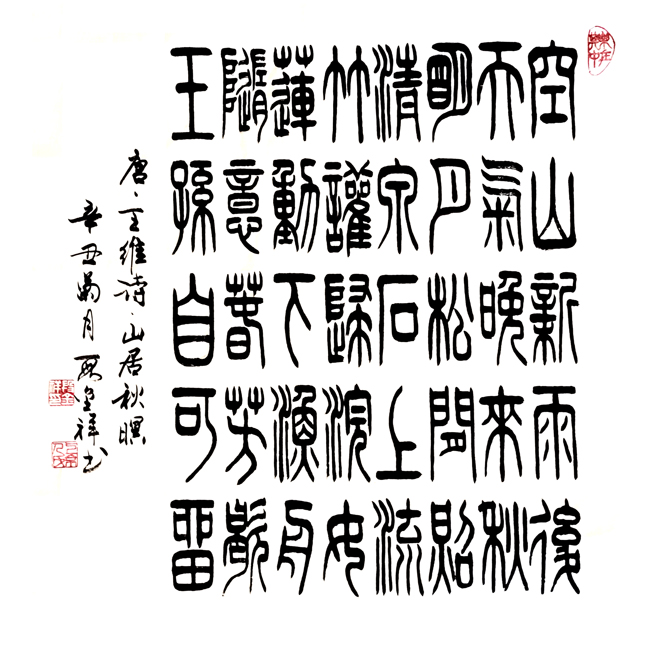 空山新雨後
天氣晚來秋
明月松間照
清泉石上流
竹讙歸浣女
蓮動下漁舟
隨意春芳歇
王孫自可留
唐、王維诗、山居秋暝
辛丑菊月 祥书